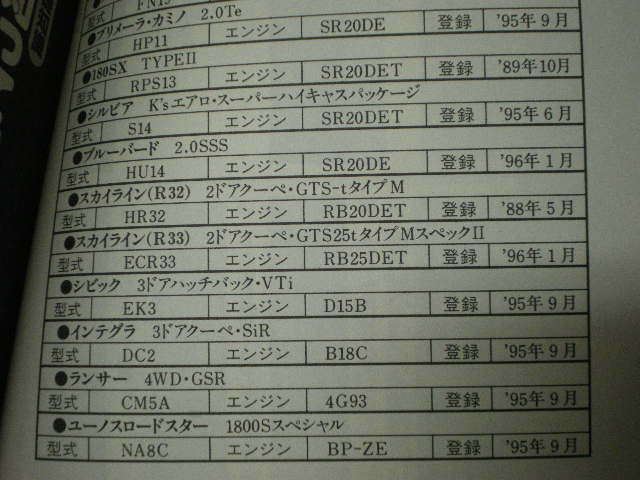 FN15
●プリメーラ・カミノ 2.0Te
型式 HP11 エンジン SR20DE 登録 '95年9月
●180SX TYPEⅡ
型式 RPS13 エンジン SR20DET 登録 '89年10月
●シルビア K'sエアロ・スーパーハイキャスパッケージ
型式 S14 エンジン SR20DET 登録 '95年6月
●ブルーバード 2.0SSS
型式 HU14 エンジン SR20DE 登録 '96年1月
●スカイライン(R32) 2ドアクーペ・GTS-tタイプM
型式 HR32 エンジン RB20DET 登録 '88年5月
●スカイライン(R33) 2ドアクーペ・GTS25tタイプMスペックⅡ
型式 ECR33 エンジン RB25DET 登録 '96年1月
●シビック 3ドアハッチバック・VTi
型式 EK3 エンジン D15B 登録 '95年9月
●インテグラ 3ドアクーペ・SiR
型式 DC2 エンジン B18C 登録 '95年9月
●ランサー 4WD・GSR
型式 CM5A エンジン 4G93 登録 '95年9月
●ユーノスロードスター 1800Sスペシャル
型式 NA8C エンジン BP-ZE 登録 '95年9月